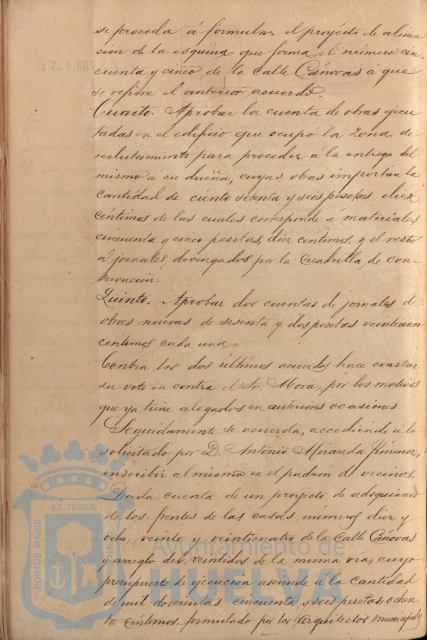 se proceda á formular el proyecto de alinea
cion de la esquina que forma el número cin
cuenta y cinco de la calle Cánovas á que
se refiere el anterior acuerdo.
Cuarto. Aprobar la cuenta de obras ejecu
tadas en el edificio que ocupó la Zona de
reclutamiento para proceder á la entrega del
mismo a su dueña, cuyas obras importan la
cantidad de ciento setenta y seis pesetas, diez
céntimos de las cuales corresponde a materiales
cincuenta y cinco pesetas, diez centimos, y el resto
a jornales devengados por la Cuadrilla de con
servacion.
Quinto. Aprobar dos cuentas de jornales de
obras nuevas de sesenta y dos pesetas veinticinco
centimos cada una.
Contra los dos últimos acuerdos hace constar
su voto en contra el Sr. Mora, por los motivos
que ya tiene alegados en anteriores ocasiones
Seguidamente se acuerda, accediendo a lo
solicitado por D. Antonio Miranda Jimenez,
inscribir al mismo en el padron de vecinos.
Dada cuenta de un proyecto de adoquinado
de los frentes de las casas números diez y
ocho, veinte y veinticuatro de la Calle Cánovas
y arreglo del veintidos de la misma via, cuyo
presupuesto de ejecucion asciende á la cantidad
de mil doscientas cincuenta y seis pesetas, ochen
ta centimos formulado por los Arquitectos municipales
PORTUS MARIS ET TERRAE
Ayuntamiento de
HUELVA